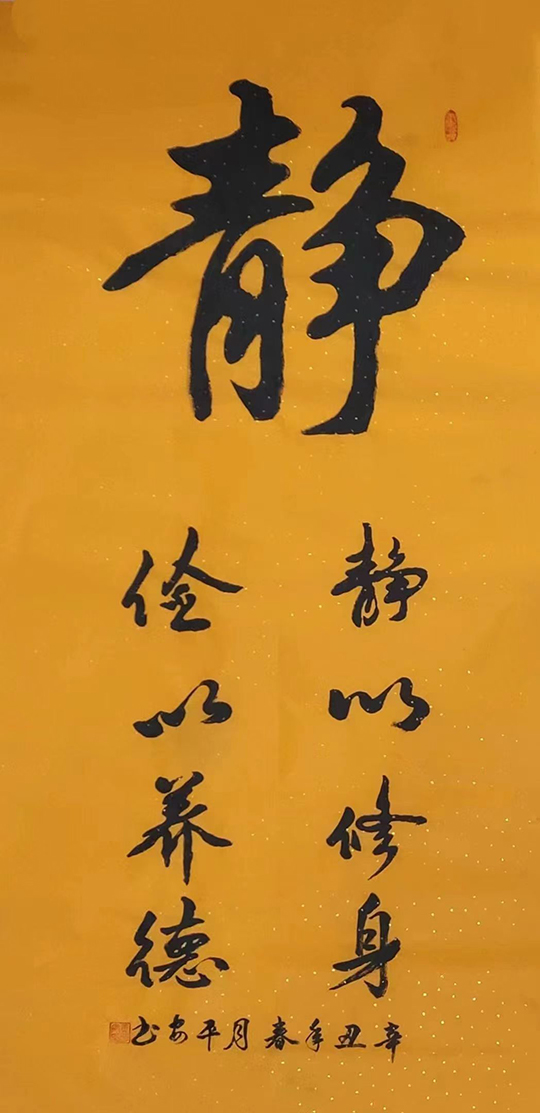 静
静以修身
俭以养德
辛丑年春月平安书